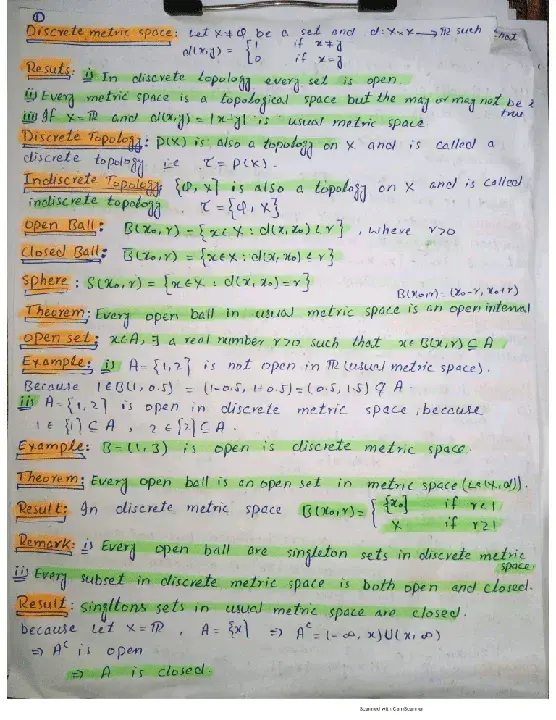 ①
Discrete metric space: Let X≠φ be a set and d: X×X → R such that
d(x,y) = { 1 if x≠y
0 if x=y
Results: i) In discrete topology every set is open.
ii) Every metric space is a topological space but the may or may not be true
iii) If X=R and d(x,y) = |x-y| is usual metric space
Discrete Topology: P(X) is also a topology on X and is called a
discrete topology i.e τ = P(X).
Indiscrete Topology {φ, X} is also a topology on X and is called
indiscrete topology. τ = {φ, X}
open Ball: B(x₀,r) = {x∈X : d(x,x₀) < r} , where r>0
Closed Ball: B(x₀,r) = {x∈X : d(x,x₀) ≤ r}
Sphere: S(x₀,r) = {x∈X : d(x,x₀) = r}
B(x₀,r) = (x₀-r, x₀+r)
Theorem: Every open ball in usual metric space is an open interval
open set: x∈A, ∃ a real number r>0 such that x∈B(x,r) ⊆ A
Example: i) A={1,2} is not open in R (usual metric space).
Because 1∈B(1,0.5) = (1-0.5, 1+0.5) = (0.5, 1.5) ⊈ A
ii) A={1,2} is open in discrete metric space, because
1∈{1}⊆A , 2∈{2}⊆A.
Example: B=(1,3) is open is discrete metric space.
Theorem: Every open ball is an open set in metric space (Let(X,d)).
Result: In discrete metric space B(x₀,r) = { {x₀} if r<1
X if r≥1
Remark: i) Every open ball are singleton sets in discrete metric space
ii) Every subset in discrete metric space is both open and closed.
Result: singltons sets in usual metric space are closed.
because Let X=R , A={x} ⇒ Aᶜ = (-∞, x)∪(x, ∞)
⇒ Aᶜ is open
⇒ A is closed.
Scanned with CamScanner